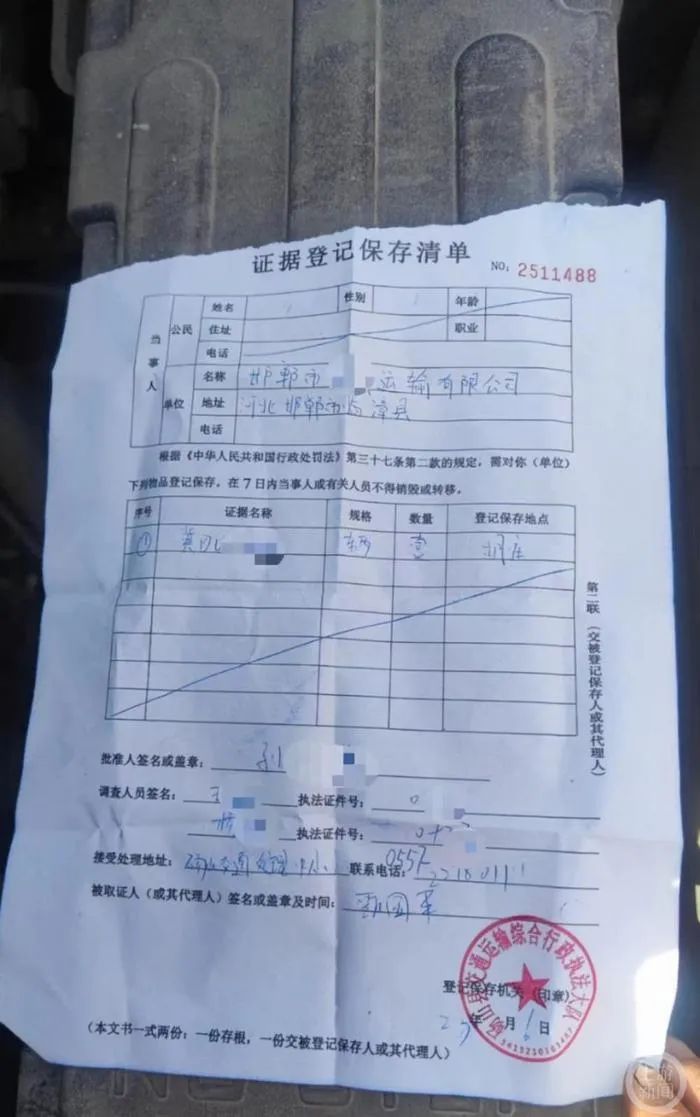 证据登记保存清单
NO: 2511488
当事人 公民 姓名 性别 年龄
住址 职业
电话
单位 名称 邯郸市 运输有限公司
地址 河北邯郸市临漳县
电话
根据《中华人民共和国行政处罚法》第三十七条第二款的规定，需对你（单位）
下列物品登记保存。在7日内当事人或有关人员不得销毁或转移。
序号 证据名称 规格 数量 登记保存地点
① 冀 辆 壹
第二联（交被登记保存人或其代理人）
批准人签名或盖章：
调查人员签名：王 执法证件号：0
执法证件号：
接受处理地址： 联系电话：0557-
被取证人（或其代理人）签名或盖章及时间：
登记保存机关（印章）
年 月 日
砀山县交通运输综合行政执法大队
（本文书一式两份：一份存根，一份交被登记保存人或其代理人）
上游新闻